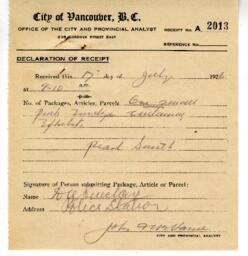 City of Vancouver, B.C.
OFFICE OF THE CITY AND PROVINCIAL ANALYST
RECEIPT NO. A 2013
236 CORDOVA STREET EAST
REFERENCE NO.
DECLARATION OF RECEIPT
Received this 17 day of July 192
at 9-10
No. of Packages, Articles, Parcels One
Pink containing
Pearl Smith
Signature of Person submitting Package, Article or Parcel:
Name
Address Police Station
John
CITY AND PROVINCIAL ANALYST